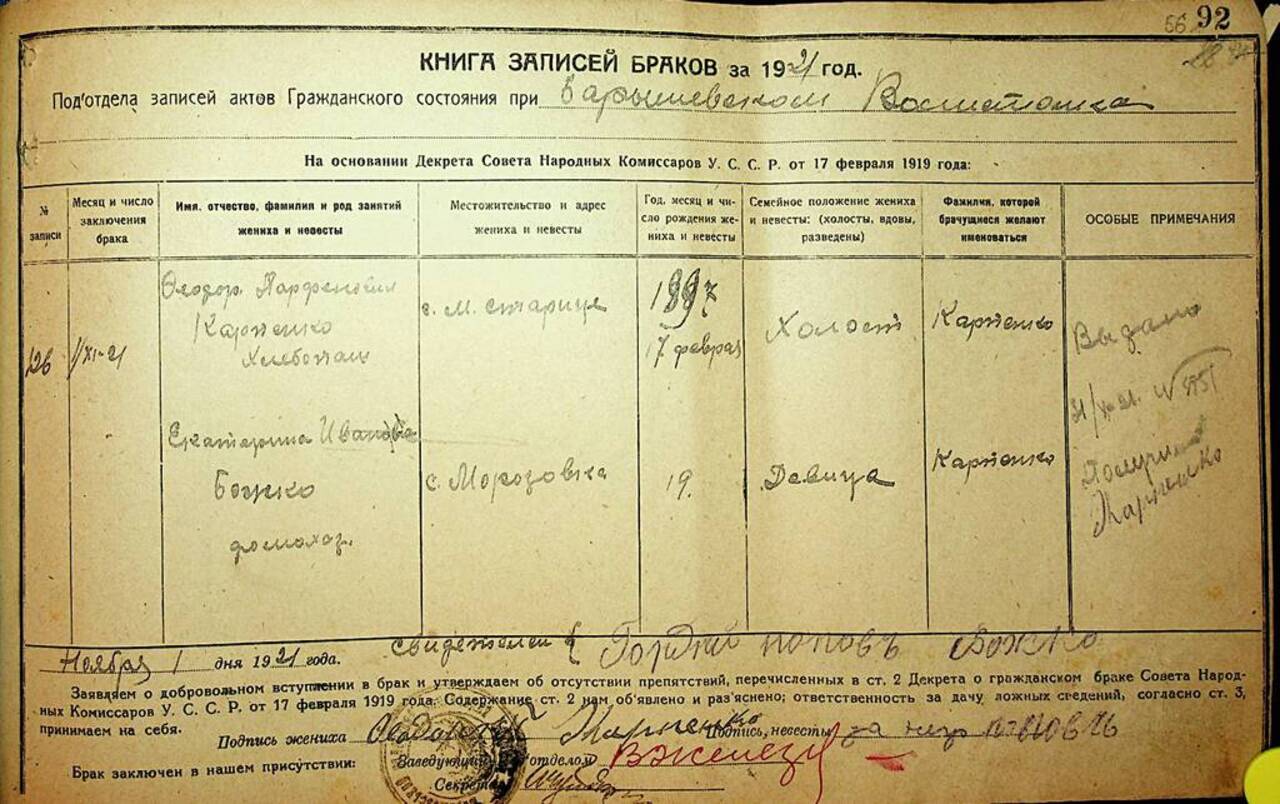 92
56
КНИГА ЗАПИСЕЙ БРАКОВ за 1921 год.
Под'отдела записей актов Гражданского состояния при Барышевском
На основании Декрета Совета Народных Комиссаров У. С. С. Р. от 17 февраля 1919 года:
№ записи
Месяц и число заключения брака
Имя, отчество, фамилия и род занятий жениха и невесты
Местожительство и адрес жениха и невесты
Год, месяц и число рождения жениха и невесты
Семейное положение жениха и невесты: (холосты, вдовы, разведены)
Фамилия, которой брачущиеся желают именоваться
ОСОБЫЕ ПРИМЕЧАНИЯ
126
1/XI-21
Феодор Парфенович
Карпенко
Хлебопаш
с. М. Старице
1897
17 февраля
Холост
Карпенко
Выдано
Екатерина Иванова
Божко
домохоз.
с. Морозовка
19.
Девица
Карпенко
Карпенко
свидетели { Гордий Поповъ Божко
Ноября 1 дня 1921 года.
Заявляем о добровольном вступлении в брак и утверждаем об отсутствии препятствий, перечисленных в ст. 2 Декрета о гражданском браке Совета Народ-
ных Комиссаров У. С. С. Р. от 17 февраля 1919 года. Содержание ст. 2 нам об'явлено и раз'яснено; ответственность за дачу ложных сведений, согласно ст. 3,
принимаем на себя.
Подпись жениха Карпенко Подпись, невесты за нер Поповъ
Брак заключен в нашем присутствии:
Заведующий отделом
Секретарь